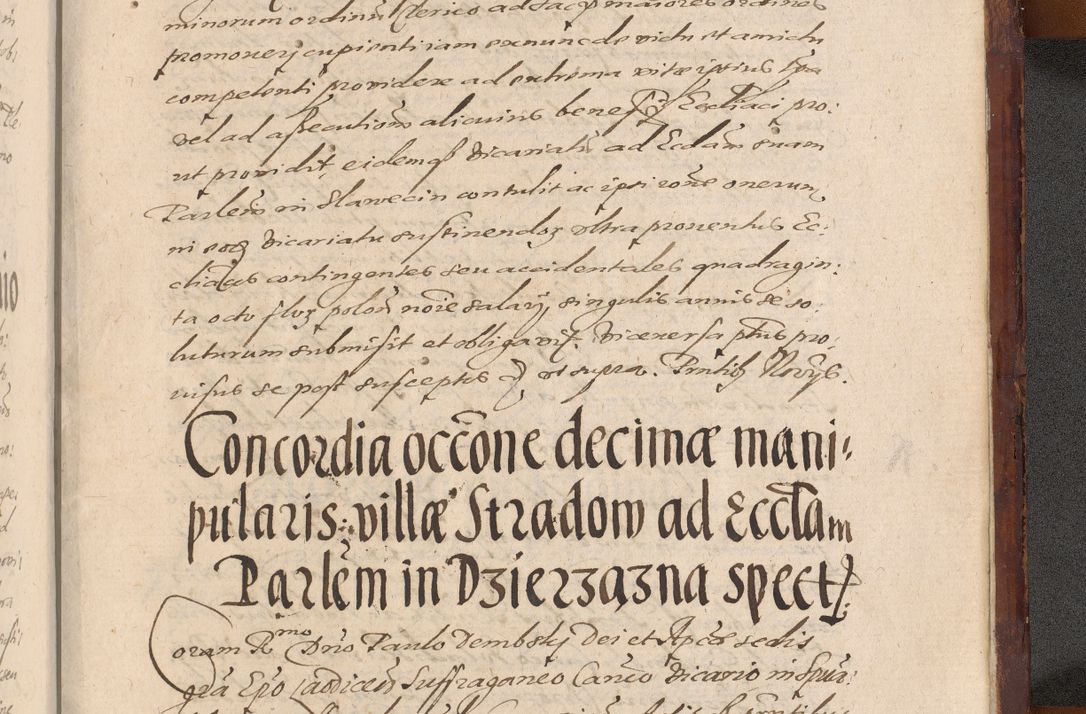 minorum ordinum Clerico ad sac maiores ordines
promoueri cupienti iam ex nunc de victu et amictu
competenti providere ad extrema vitæ ipsius tpa
vel ad assecutionem alicuius beneficij Eccliaci pro:
ut providit, eidemq Vicariatū ad Ecclam suam
Parlem in Slawecin contulit ac ipsi rone onerum
in eog Vicariatu sustinendoz vltra proventus Ec:
cliacos contingentes seu accidentales quadragin:
ta octo floz polon noie salarij singulis annis se so:
luturum submisit et obligavit. Viceversa ptus pro,
visus se post susceptos ut supra. Pntib Novys.
Concordia occone decimæ mani:
pularis villæ Stradow ad Ecclam
Parlem in Dzierzazna spect:
Coram Rmo Dno Paulo Dembsky Dei et Apcæ sedis
gra Epo Laodicen Suffraganeo Canco Vicario in Spua: